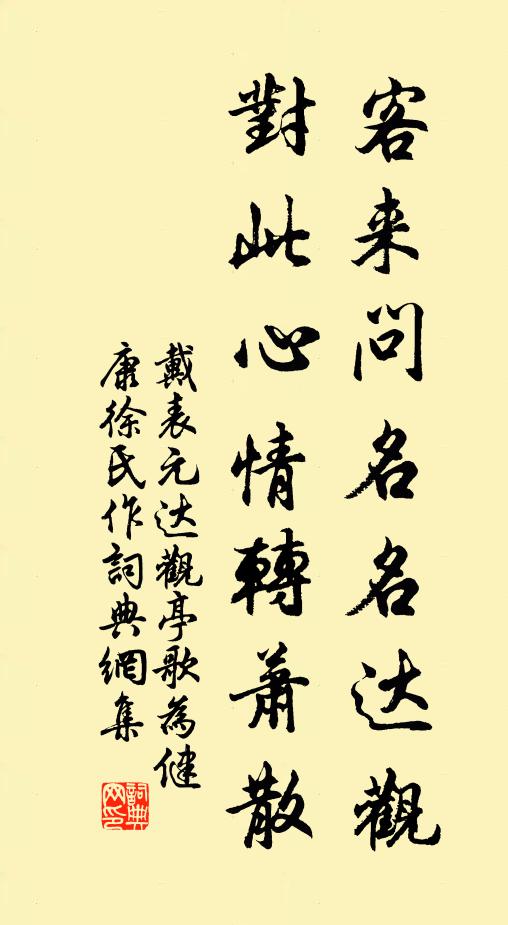 客来问名名达觀
對此心情轉蕭散
戴表元达觀亭歌為健
康徐氏作詞典網集
詞典
网印